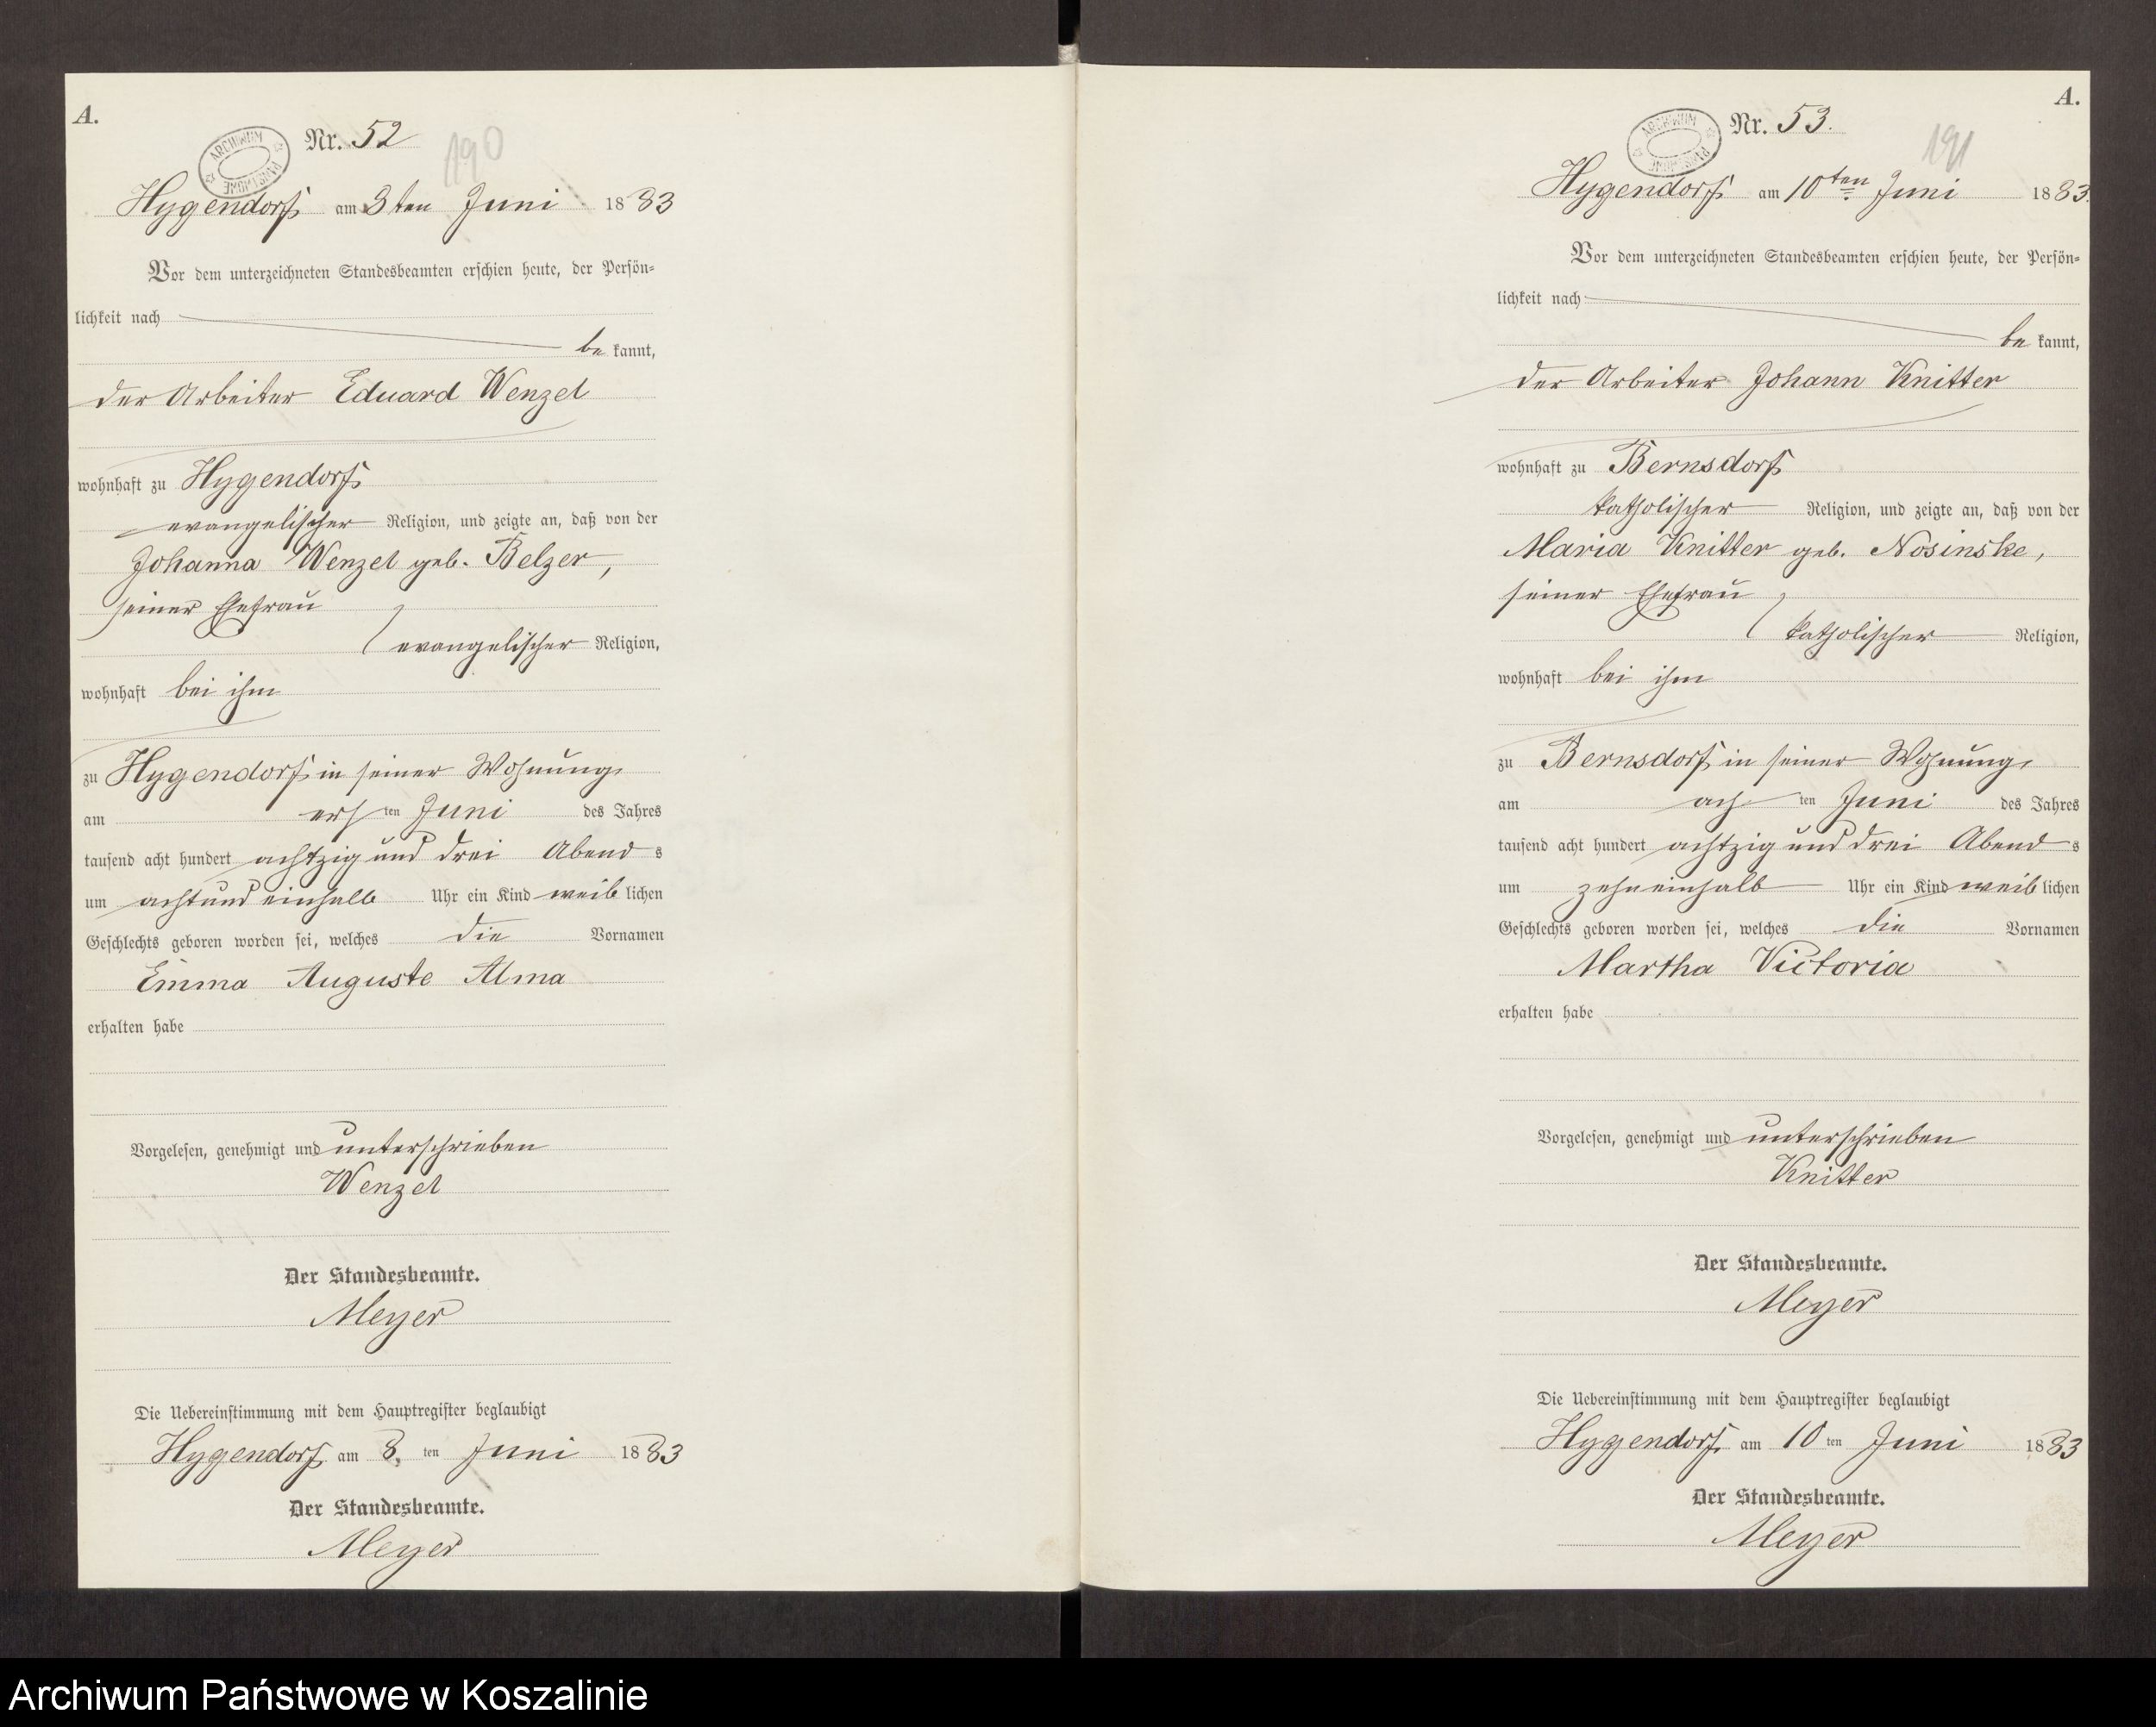 A.
Nr. 52
190
ARCHIWUM PAŃSTWOWE
Hygendorf am 8ten Juni 1883
Vor dem unterzeichneten Standesbeamten erschien heute, der Persön-
lichkeit nach
be kannt,
der Arbeiter Eduard Wenzel
wohnhaft zu Hygendorf
evangelischer Religion, und zeigte an, daß von der
Johanna Wenzel geb. Belzer,
seiner Ehefrau
evangelischer Religion,
wohnhaft bei ihm
zu Hygendorf in seiner Wohnung
am ersten Juni des Jahres
tausend acht hundert achtzig und drei Abends
um acht und einhalb Uhr ein Kind weiblichen
Geschlechts geboren worden sei, welches die Vornamen
Emma Auguste Alma
erhalten habe
Vorgelesen, genehmigt und unterschrieben
Wenzel
Der Standesbeamte.
Meyer
Die Uebereinstimmung mit dem Hauptregister beglaubigt
Hygendorf am 8. ten Juni 1883
Der Standesbeamte.
Meyer
A.
Nr. 53.
191
ARCHIWUM PAŃSTWOWE
Hygendorf am 10ten Juni 1883.
Vor dem unterzeichneten Standesbeamten erschien heute, der Persön-
lichkeit nach
be kannt,
der Arbeiter Johann Knitter
wohnhaft zu Bernsdorf
katholischer Religion, und zeigte an, daß von der
Maria Knitter geb. Nosinske,
seiner Ehefrau
katholischer Religion,
wohnhaft bei ihm
zu Bernsdorf in seiner Wohnung,
am achten Juni des Jahres
tausend acht hundert achtzig und drei Abends
um zehneinhalb Uhr ein Kind weiblichen
Geschlechts geboren worden sei, welches die Vornamen
Martha Victoria
erhalten habe
Vorgelesen, genehmigt und unterschrieben
Knitter
Der Standesbeamte.
Meyer
Die Uebereinstimmung mit dem Hauptregister beglaubigt
Hygendorf am 10 ten Juni 1883
Der Standesbeamte.
Meyer
Archiwum Państwowe w Koszalinie